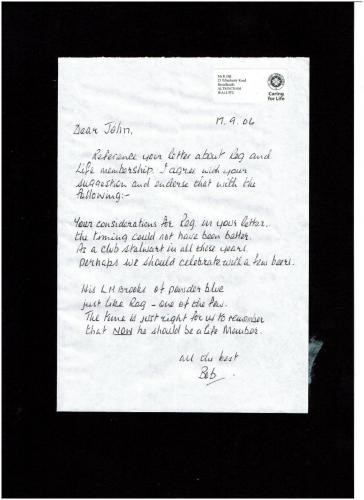 Mr B Hill
Broadheath
ALTRINCHAM
WA14 5PZ
Caring
for Life
17.9.06
Dear John,
Reference your letter about Reg and
Life membership. I agree with your
suggestion and endorse that with the
following:-
Your considerations for Reg in your letter,
the timing could not have been better.
As a club stalwart in all these years
perhaps we should celebrate with a few beers.
His L.H. Brooks of powder blue
just like Reg - one of the few.
The time is just right for us to remember
that NOW he should be a life Member.
All the best
Bob.